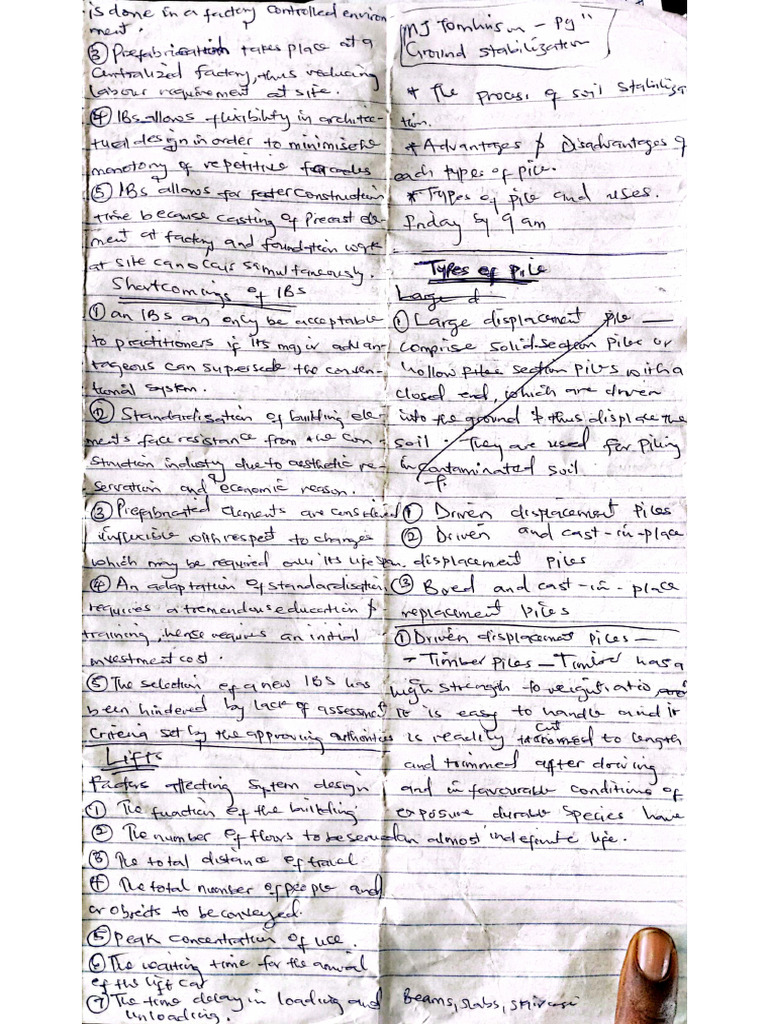 is done in a factory controlled environ
ment.
③ Prefabrication takes place at a
centralized factory, thus reducing
labour requirement at site.
④ IBs allows flexibility in architec-
tural design in order to minimise the
monotony of repetitive facades
⑤ IBs allows for faster construction
time because casting of precast ele-
ment at factory and foundation work
at site can occurs simultaneously.
Shortcomings of IBS
① an IBS can only be acceptable
to practitioners if its major advan-
tageous can supersede the conven-
tional system.
② Standardisation of building ele-
ments face resistance from the con-
struction industry due to aesthetic re-
servation and economic reason.
③ Prefabricated elements are considered
inflexible with respect to changes
which may be required over its life span.
④ An adaptation of standardisation
requires a tremendous education &
training, hense requires an initial
investment cost.
⑤ The selection of a new IBS has
been hindered by lack of assessment
criteria set by the approving authorities
Lifts
factors affecting system design
① The function of the building
② The number of floors to be served
③ The total distance of travel
④ The total number of people and
or objects to be conveyed.
⑤ Peak concentration of use.
⑥ The waiting time for the arrival
of the lift car
⑦ The time delay in loading and
unloading.
MJ Tomlinson - Pg"
Ground stabilization
* The process of soil stabiliza
tion.
* Advantages & Disadvantages of
each types of pile.
* Types of pile and uses.
Friday by 9 am
Types of Pile
Large d
① Large displacement pile —
comprise solid section piles or
hollow section piles with a
closed end, which are driven
into the ground & thus displace the
soil. They are used for piling
in contaminated soil
① Driven displacement piles
② Driven and cast-in-place
displacement piles
③ Bored and cast-in-place
replacement piles
① Driven displacement piles —
- Timber Piles - Timber has a
high strength to weight ratio
it is easy to handle and it
is readily cut to length
and trimmed after driving
and in favourable conditions of
exposure durable species have
an almost indefinite life.
Beams, slabs, staircase